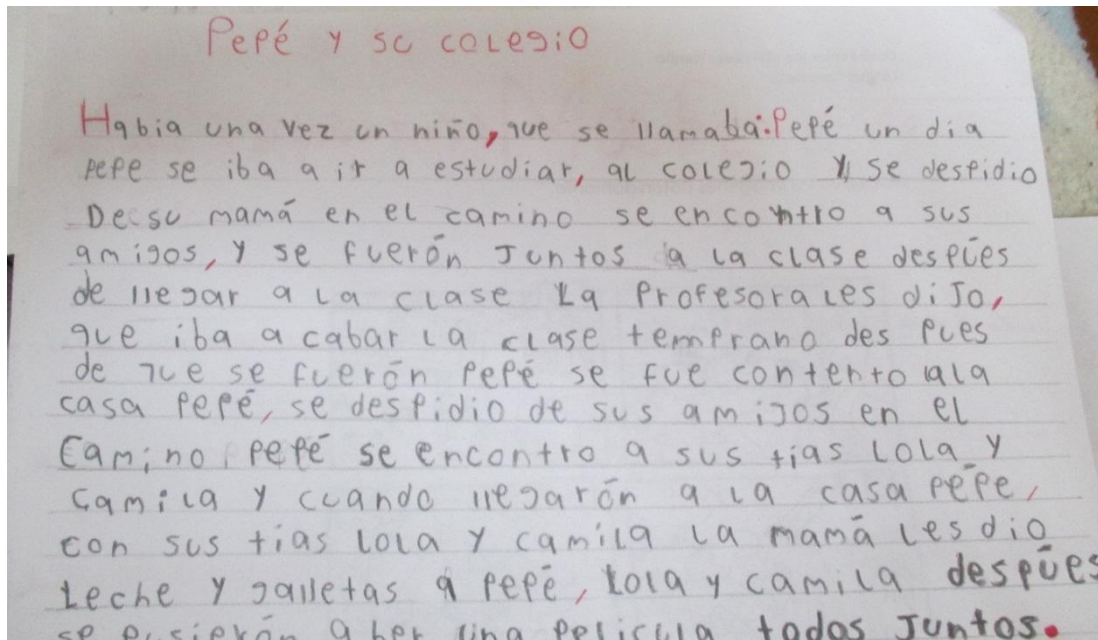 Pepé y su colegio
Habia una vez un niño, que se llamaba: Pepé un dia
pepe se iba a ir a estudiar, al colegio y se despidio
De su mamá en el camino se encontro a sus
amigos, y se fuerón Juntos a la clase despúes
de llegar a la clase La Profesora les diJo,
que iba a cabar la clase temprano des pues
de que se fuerón Pepé se fue contento ala
casa Pepé, se despidio de sus amigos en el
Camino, Pepé se encontro a sus tias Lola y
Camila y cuando llegarón a la casa pépe,
con sus tias lola y camila la mamá les dio
Leche y galletas a pepé, Lola y camila despúes
se pusierón a ber una pelicula todos Juntos.